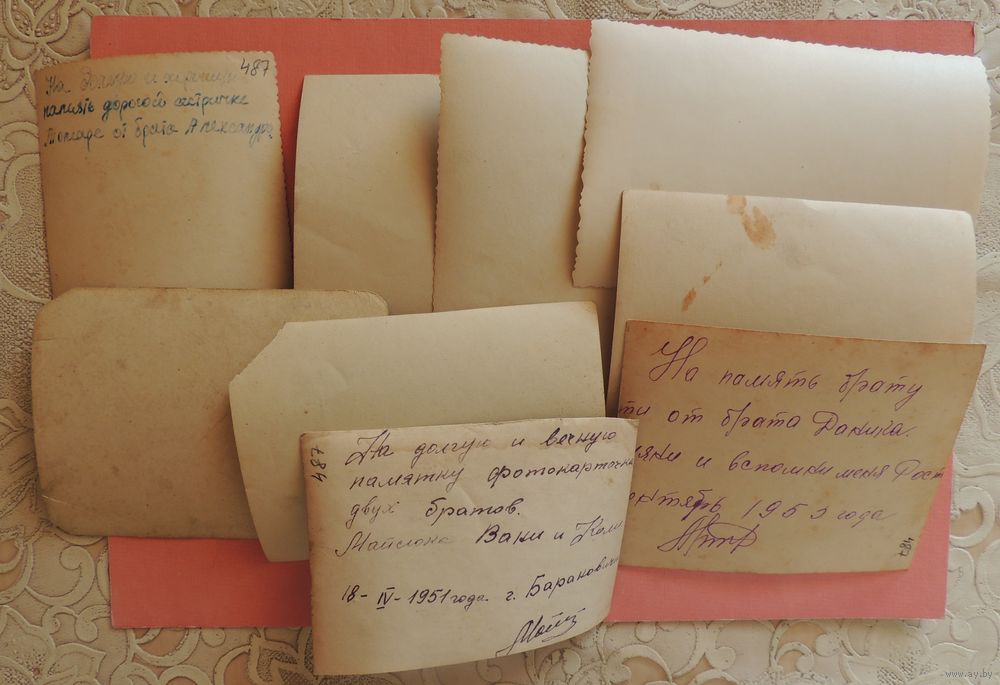 487
На долгую и
память дорогой сестричке
Томаре от брата Александра
На память брату
ти от брата Даника.
и вспомни меня Рост
октябрь 1953 года
487
487
На долгую и вечную
памятку фотокарточка
двух братов.
Вани и Коли
18-IV-1951 года г. Баранович
www.ay.by